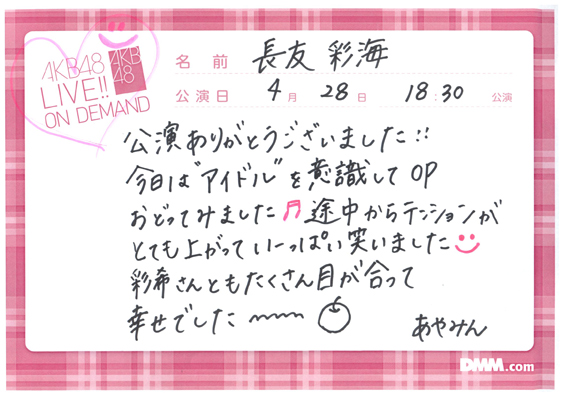 AKB48
LIVE!!
ON DEMAND
AKB
48
名前 長友 彩海
公演日 4月 28日 18:30 公演
公演ありがとうございました!!
今日は"アイドル"を意識してOP
おどってみました♬途中からテンションが
とても上がっていーっぱい笑いました
彩希さんともたくさん目が合って
幸せでした〜〜
あやみん
DMM.com